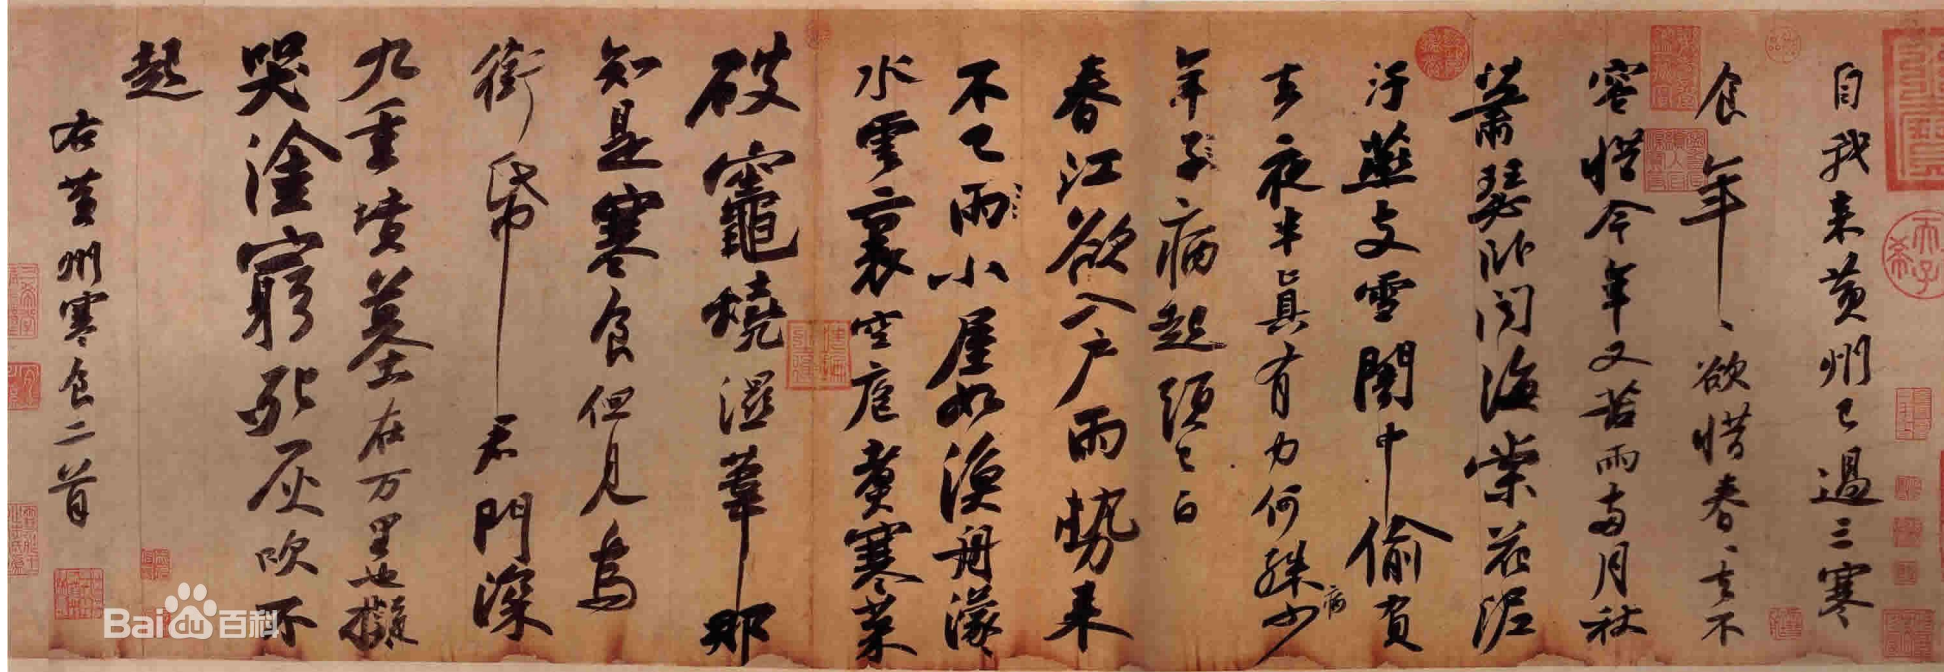 自我来黄州已過三寒
食年、欲惜春、去不
容惜今年又苦雨兩月秋
蕭瑟卧聞海棠花泥
汙燕支雪闇中偷負
去夜半真有力何殊少
年子病起頭已白
病
春江欲入户雨勢来
不已雨小屋如漁舟濛
水雲裏空庖煮寒菜
破竈燒濕葦那
知是寒食但見烏
銜帋君門深
九重墳墓在万里也擬
哭塗窮死灰吹不
起
右黄州寒食二首
Bai百科